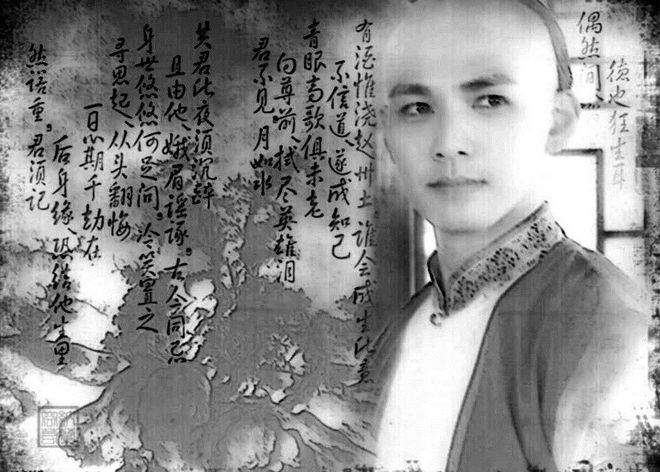 德也狂生耳
偶然间、
有酒惟浇赵州土。谁会成生此意
不信道、遂成知己
青眼高歌俱未老
向尊前、拭尽英雄泪
君不见、月如水
共君此夜须沉醉
且由他、娥眉谣诼。古今同忌
身世悠悠何足问。冷笑置之
寻思起、从头翻悔
一日心期千劫在
后身缘、恐结他生里
然诺重。君须记